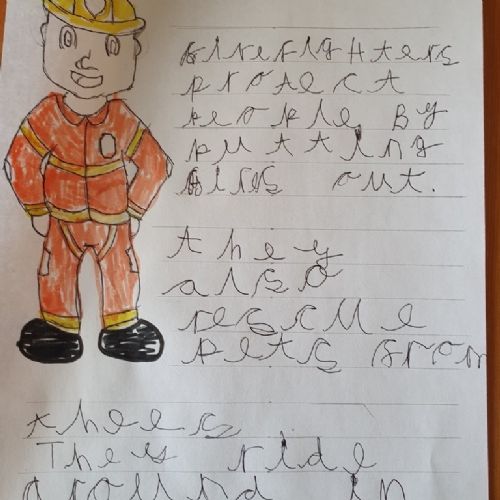 firefighters
protect
people by
putting
firs out.
they
also
rescue
pets from
thees
They ride
around in